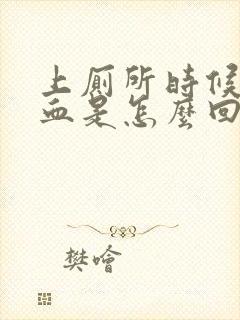 上厕所時候
血是怎麼回
樊噲